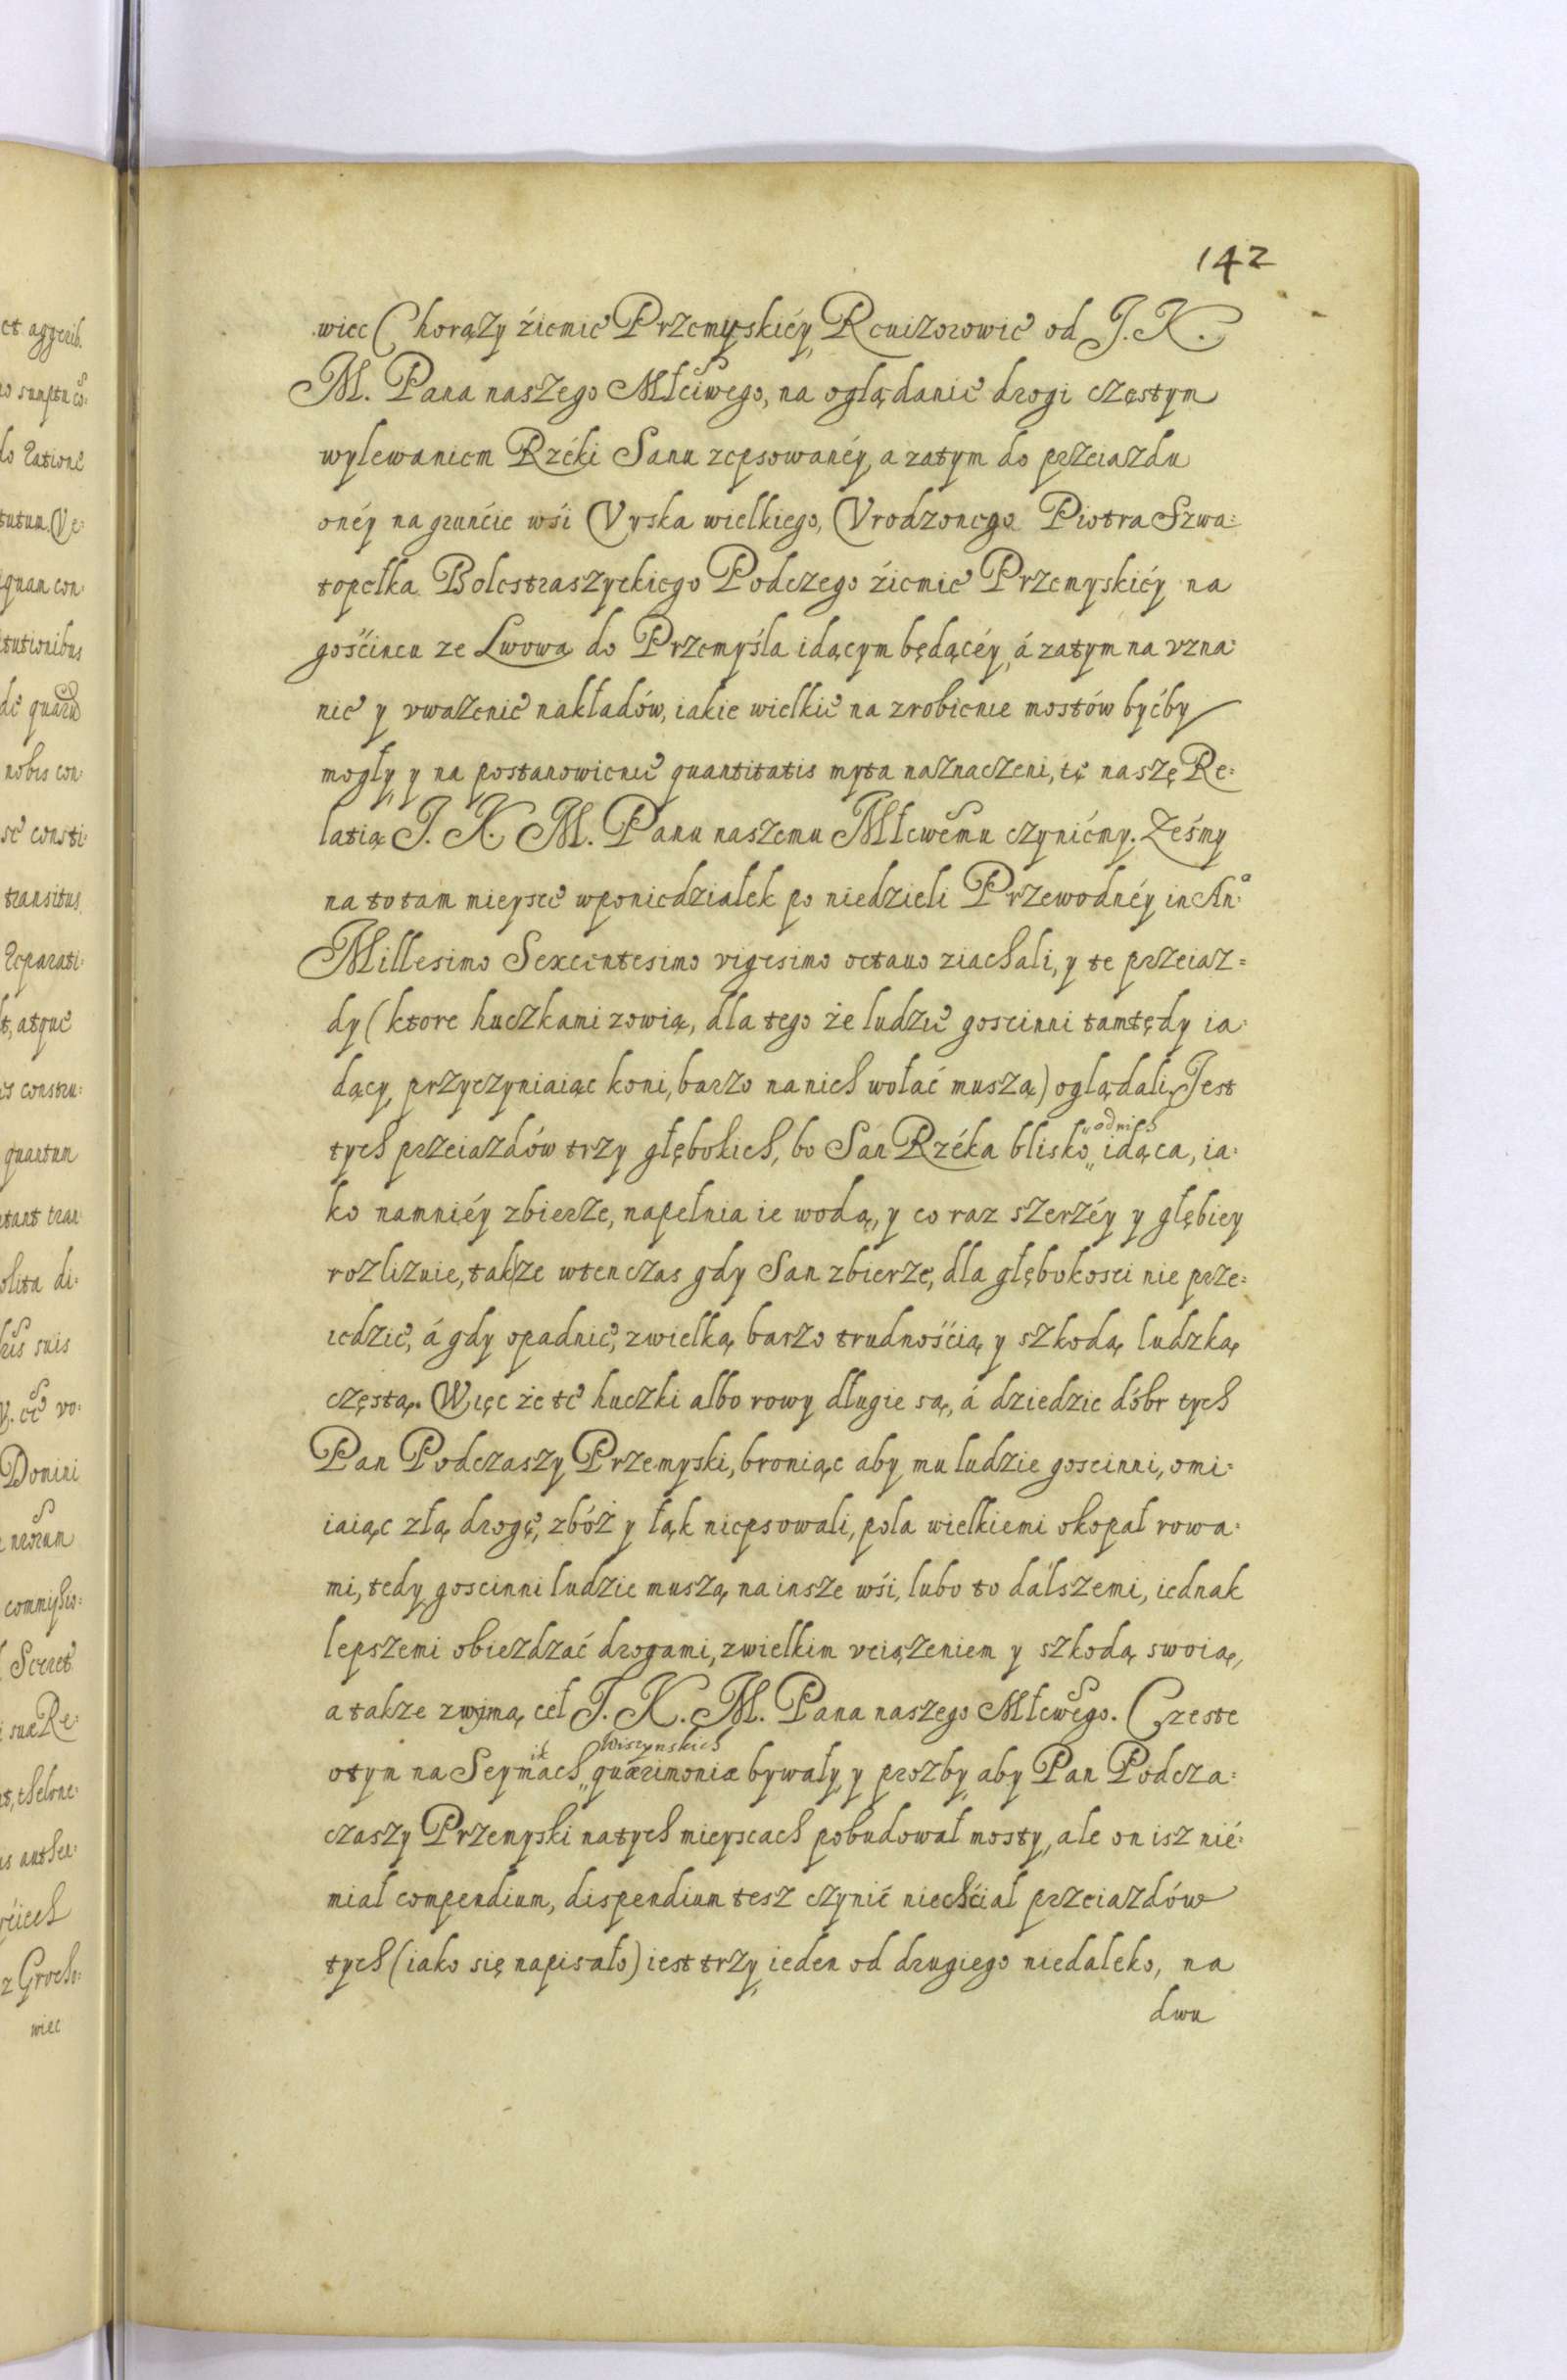 142
wiec Chorąży źiemie Przemyskiéy, Reuizorowie od J. K.
M. Pana naszego Młciwego, na oglądanie drogi częstym
wylewaniem Rzéki Sanu zepsowanéy, a zatym do przeiazdu
onéy na gruńcie wśi Vyska wielkiego, Vrodzonego Piotra Szwa=
topełka Bolestraszyckiego Podczego źiemie Przemyskiéy na
gośćincu ze Lwowa do Przemyśla idącym będącéy, á zatym na vzna=
nie y vważenie nakładów, iakie wielkie na zrobienie mostów byćby
mogły, y na postanowienie quantitatis myta naznaczeni, tę naszę Re=
latią J. K. M. Panu naszemu Młcwemu czyniémy. Ześmy
na to tam mieysce w poniedziałek po niedzieli Przewodnéy in An:o
Millesimo Sexcentesimo vigesimo octauo ziachali, y te przeiaz=
dy (ktore huczkami zowią, dla tego że ludzie goscinni tamtędy ia=
dący, przyczyniaiąc koni, barzo na nich wołać muszą) oglądali, Jest
tych przeiazdów trzy głębokich, bo San Rzéka blisko „ od nich idąca, ia=
ko namniéy zbierze, napełnia ie wodą, y co raz szerzéy y głębiey
rozlizuie, tak że wtenczas gdy San zbierze, dla głębokosci nie prze=
iedzie, á gdy opadnie, z wielką barzo trudnośćią y szkodą ludzką
częstą. Więc że te huczki albo rowy długie są, á dziedzic dóbr tych
Pan Podczaszy Przemyski, broniąc aby mu ludzie goscinni, omi=
iaiąc złą drogę, zbóż y łąk niepsowali, pola wielkiemi okopał rowa=
mi, tedy goscinni ludzie muszą na insze wśi, lubo to dálszemi, iednak
lepszemi obiezdzać drogami, z wielkim vciążeniem y szkodą swoią,
a także z wymą ceł J. K. M. Pana naszego Młcwego. Czeste
o tym na Seymikach „ Wiszynskich quærimoniæ bywały, y prozby, aby Pan Podcza=
czaszy Przemyski na tych mieyscach pobudował mosty, ale on isz nié=
miał compendium, dispendium tesz czynić niechćiał przeiazdów
tych (iako się napisało) iest trzy, ieden od drugiego niedaleko, na
dwu